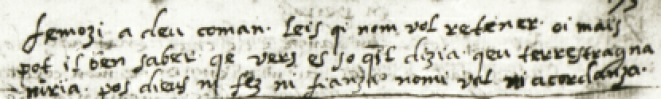 femozi a deu coman. Leis qi nom vol retener. oi mais
pot il ben saber qe vers es so qil dizia qeu terrestragna
niria. pos dieus ni fez ni fianza nomi val ni acordanza.